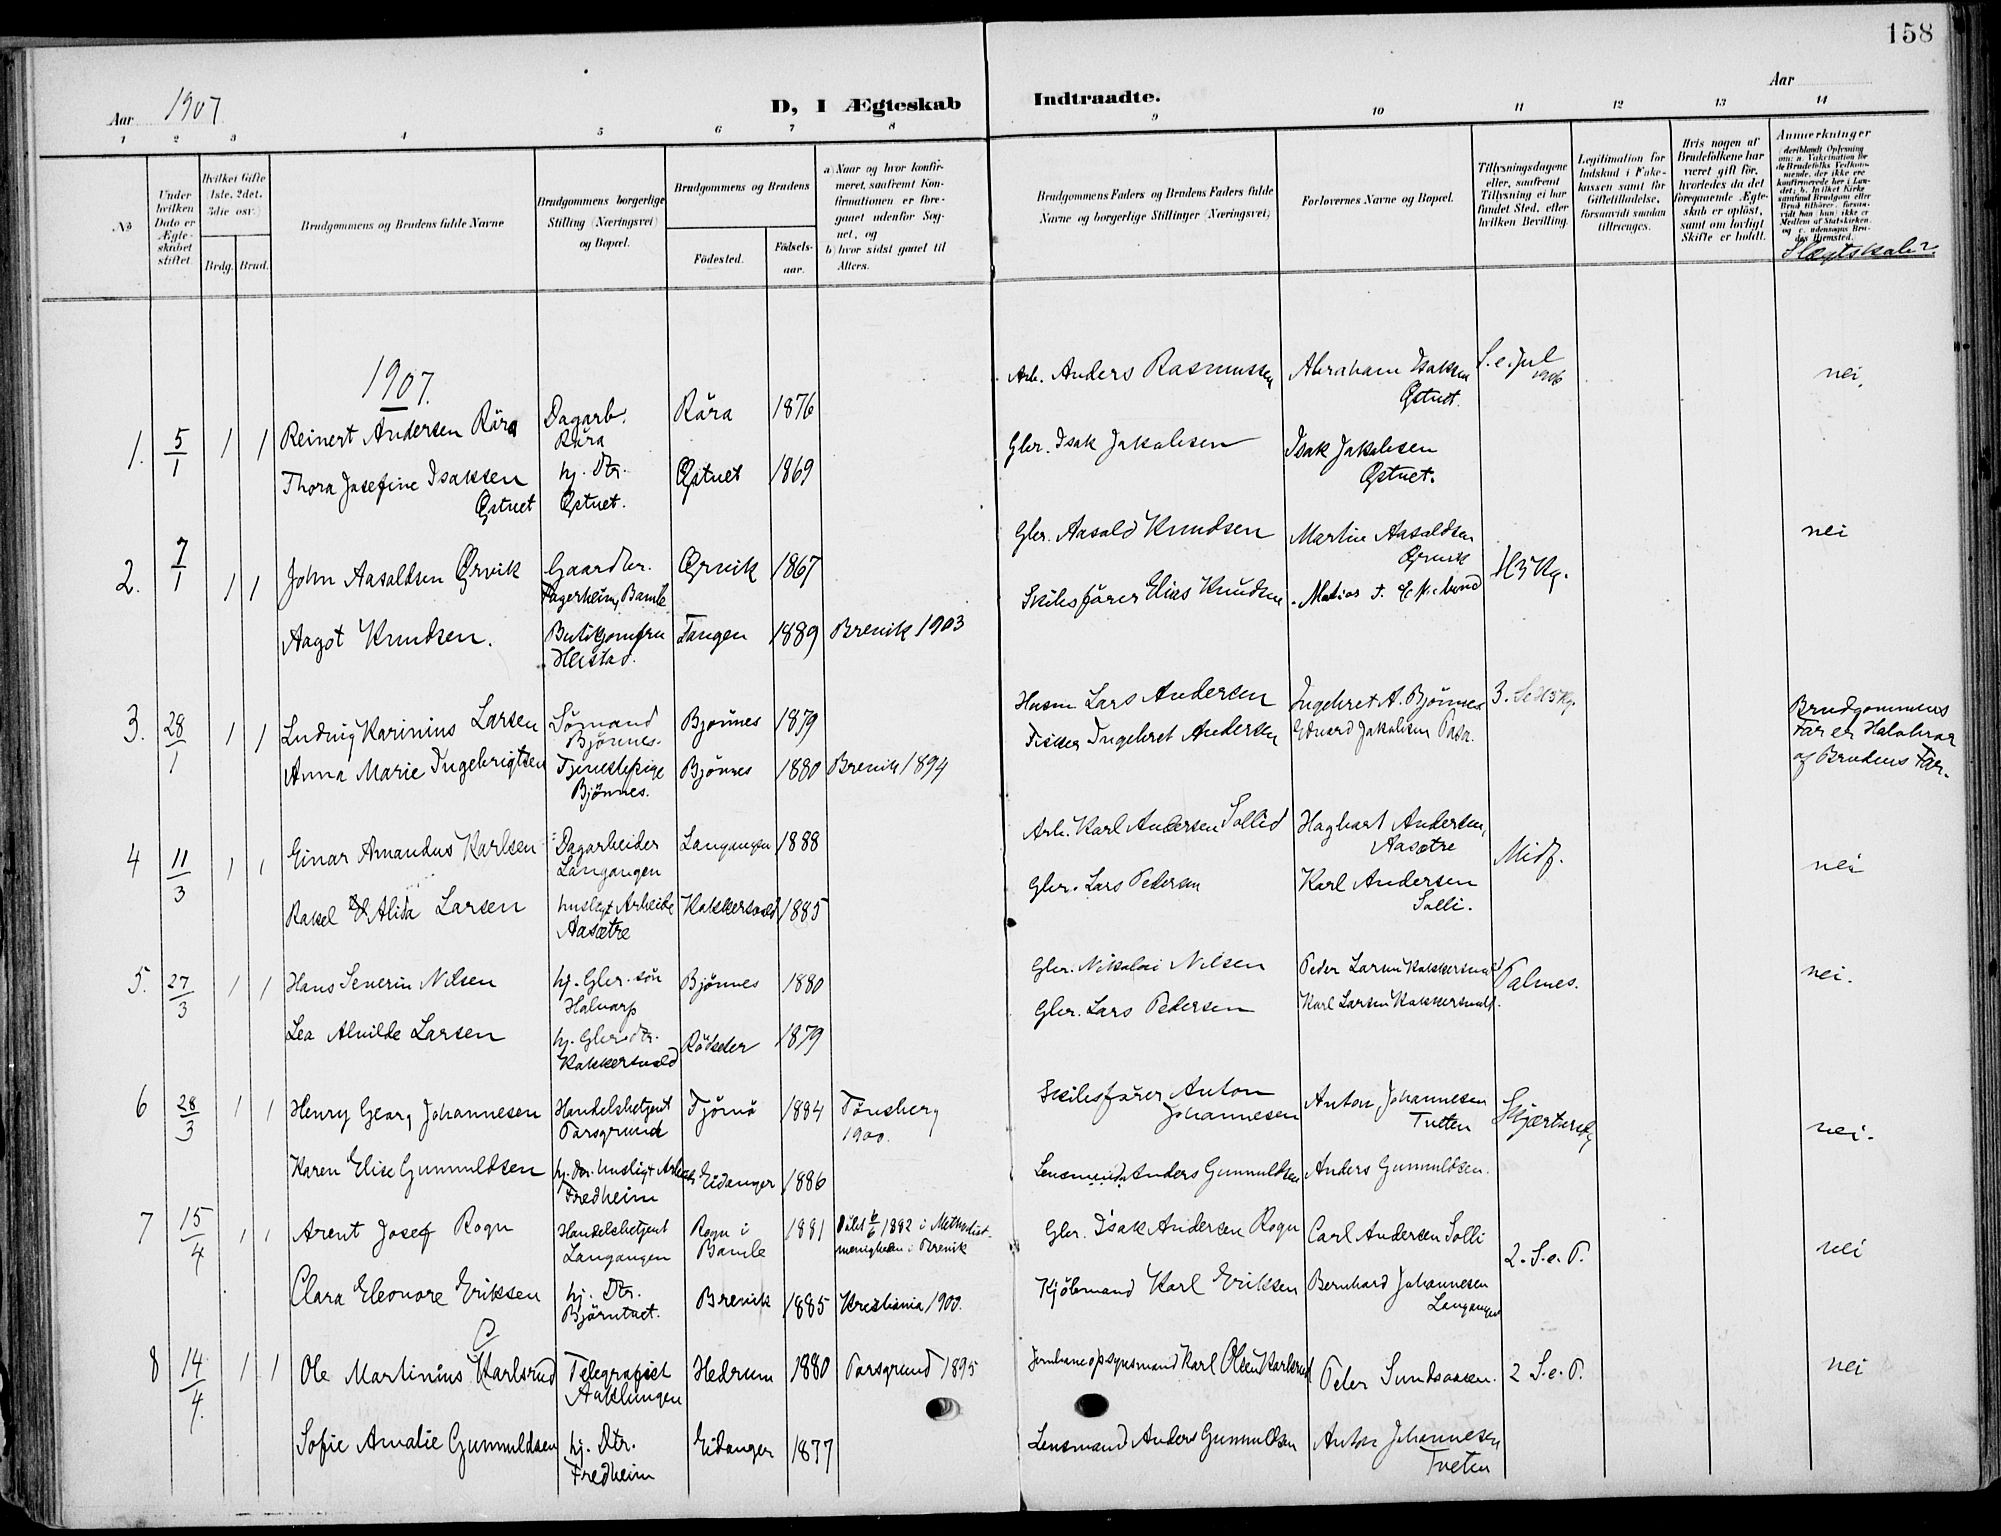 158
Aar 1907
D, I Ægteskab Indtraadte.
Aar
1 2 3 4 5 6 7 8 9 10 11 12 13 14
No
Under hvilken Dato er Ægteskabet stiftet.
Hvilket Gifte (1ste, 2det, 3die osv.)
Brdg. Brud.
Brudgommens og Brudens fulde Navne
Brudgommens borgerlige Stilling (Næringsvei) og Bopæl.
Brudgommens og Brudens
Födested.
Födselsaar.
a) Naar og hvor konfirmeret, saafremt Konfirmationen er foregaaet udenfor Sognet, og
b) hvor sidst gaaet til Alters.
Brudgommens Faders og Brudens Faders fulde Navne og borgerlige Stillinger (Næringsvei)
Forlovernes Navne og Bopæl.
Tillysningsdagene eller, saafremt Tillysning ei har fundet Sted, efter hvilken Bevilling.
Legitimation for Indskud i Enkekassen samt for Giftetilladelse, forsaavidt saadan tiltrænges.
Hvis nogen af Brudefolkene har været gift för, hvorledes da det foregaaende Ægteskab er oplöst, samt om lovligt Skifte er holdt.
Anmærkninger
(deriblandt Oplysning om: a. Vakcination for de Brudefolks Vedkommende, der ikke ere konfirmerede her i Landet; b. hvilket Kirkesamfund Brudgom eller Brud tilhörer, forsaavidt han (hun) ikke er Medlem af Statskirken, og c. udensogns Brudes Hjemsted.
Slægtskab?
1907.
1. 5/1 1 1 Reinert Andersen Råra Dagarb. Råra Råra 1876 Arb. Anders Rasmussen Abraham Isaksen Østvet. S. e. Jul 1906 nei.
Thora Josefine Isaksen Østvet hj. Dtr. Østvet. Østvet 1869 Gbr. Isak Jakobsen Isak Jakobsen Østvet.
2. 7/1 1 1 John Aasoldsen Ørvik Gaardbr. Fagerheim, Bamle Ørvik 1867 Gbr. Aasold Knudsen Martin Aasoldsen Ørvik H3Kg. nei
Aagot Knudsen. Butikjomfru Heistad. Tangen 1889 Brevik 1903 Skibsfører Elias Knudsen
3. 28/1 1 1 Ludvig Karinius Larsen Sömand Bjönnes. Bjönnes 1879 Husm Lars Andersen Ingebret A. Bjönnes 3. S e H3Kg. Brudgommens Far er Halvbror af Brudens Far.
Anna Marie Ingebrigtsen Tjenestepige Bjönnes. Bjönnes 1880 Brevik 1894 Fisker Ingebret Andersen Edvard Jakobsen
4 11/3 1 1 Einar Amandus Karlsen Dagarbeider Langangen Langangen 1888 Arb. Karl Andersen Sollid Hagbart Andersen, Aasætre Midf. nei
Rakel Alida Larsen husligt Arbeide Aasætre Kokkersvold 1885 Gbr. Lars Pedersen Karl Andersen Solli.
5. 27/3 1 1 Hans Severin Nilsen hj. Gbr. sön Halvarp Bjönnes 1880 Gbr. Nikolai Nilsen Peder Larsen Kokkersvold Palmes. nei.
Lea Alvilde Larsen hj. Gbrs dtr. Kokkersvold Rödseter 1879 Gbr. Lars Pedersen Karl Larsen Kokkersvold.
6 28/3 1 1 Henry Georg Johannesen Handelsbetjent Porsgrund Tjömö 1884 Tönsberg 1900. Skibsfører Anton Johannesen Anton Johannesen Tveten Skjærtorsdg nei.
Karen Elise Gunnuldsen hj. Dtr. husligt Arbeide Fredheim Eidanger 1886 Lensmand Anders Gunnuldsen Anders Gunnuldsen.
7 15/4 1 1 Arent Josef Rogn Handelsbetjent Langangen Rogn i Bamle 1881 Döbt 6/6 1882 i Methodistmenigheden i Brevik Gbr. Isak Andersen Rogn Carl Andersen Solli 2. S. e. P. nei
Clara Eleonore Eriksen hj. Dtr. Björntvet. Brevik 1885 Kristiania 1900. Kjöbmand Karl Eriksen Bernhard Johannesen Langangen
8 14/4. 1 1 Ole Martinius Karlsrud Telegrafist Aaklungen Hedrum 1880 Porsgrund 1895 Jernbaneopsynsmand Karl Olsen Karlsrud Peter Sundsaasen. 2 S. e. P. nei
Sofie Amalie Gunnuldsen hj. Dtr. Fredheim Eidanger 1877 Lensmand Anders Gunnuldsen Anton Johannesen Tveten